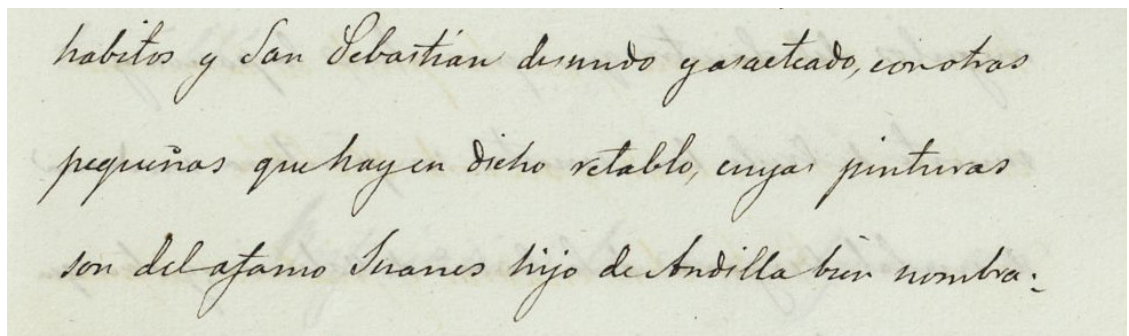 habitos y San Sebastián desnudo y asaeteado, con otras
pequeñas que hay en dicho retablo, cuyas pinturas
son del afamo Juanes hijo de Andilla bien nombra-